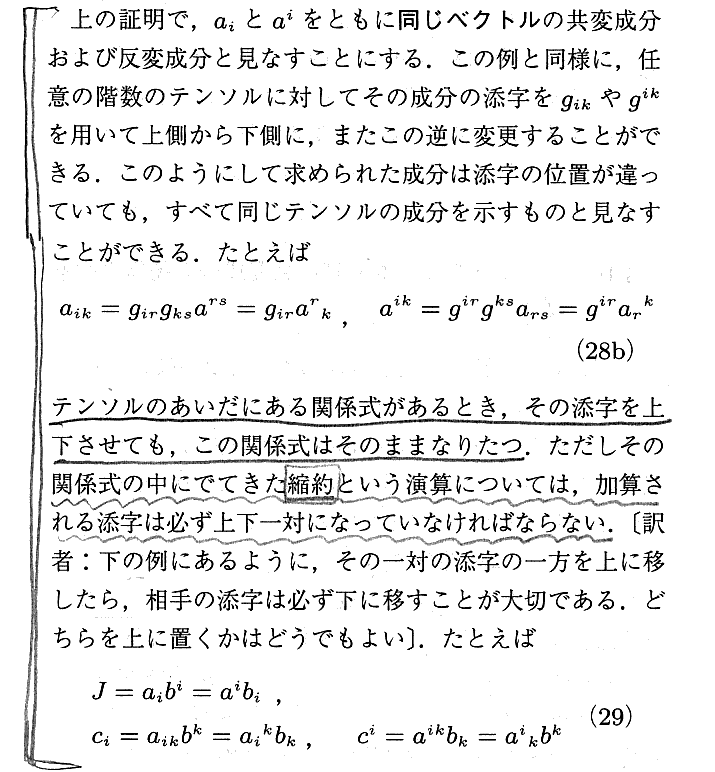 上の証明で，aᵢ と aⁱ をともに同じベクトルの共変成分
および反変成分と見なすことにする．この例と同様に，任
意の階数のテンソルに対してその成分の添字を gᵢₖ や gⁱᵏ
を用いて上側から下側に，またこの逆に変更することがで
きる．このようにして求められた成分は添字の位置が違っ
ていても，すべて同じテンソルの成分を示すものと見なす
ことができる．たとえば
a_{ik} = g_{ir}g_{ks}a^{rs} = g_{ir}a^{r}{}_{k} ， a^{ik} = g^{ir}g^{ks}a_{rs} = g^{ir}a_{r}{}^{k}
(28b)
テンソルのあいだにある関係式があるとき，その添字を上
下させても，この関係式はそのままなりたつ．ただしその
関係式の中にでてきた縮約という演算については，加算さ
れる添字は必ず上下一対になっていなければならない．〔訳
者：下の例にあるように，その一対の添字の一方を上に移
したら，相手の添字は必ず下に移すことが大切である．ど
ちらを上に置くかはどうでもよい〕．たとえば
J = a_{i}b^{i} = a^{i}b_{i} ，
(29)
c_{i} = a_{ik}b^{k} = a_{i}{}^{k}b_{k} ， c^{i} = a^{ik}b_{k} = a^{i}{}_{k}b^{k}